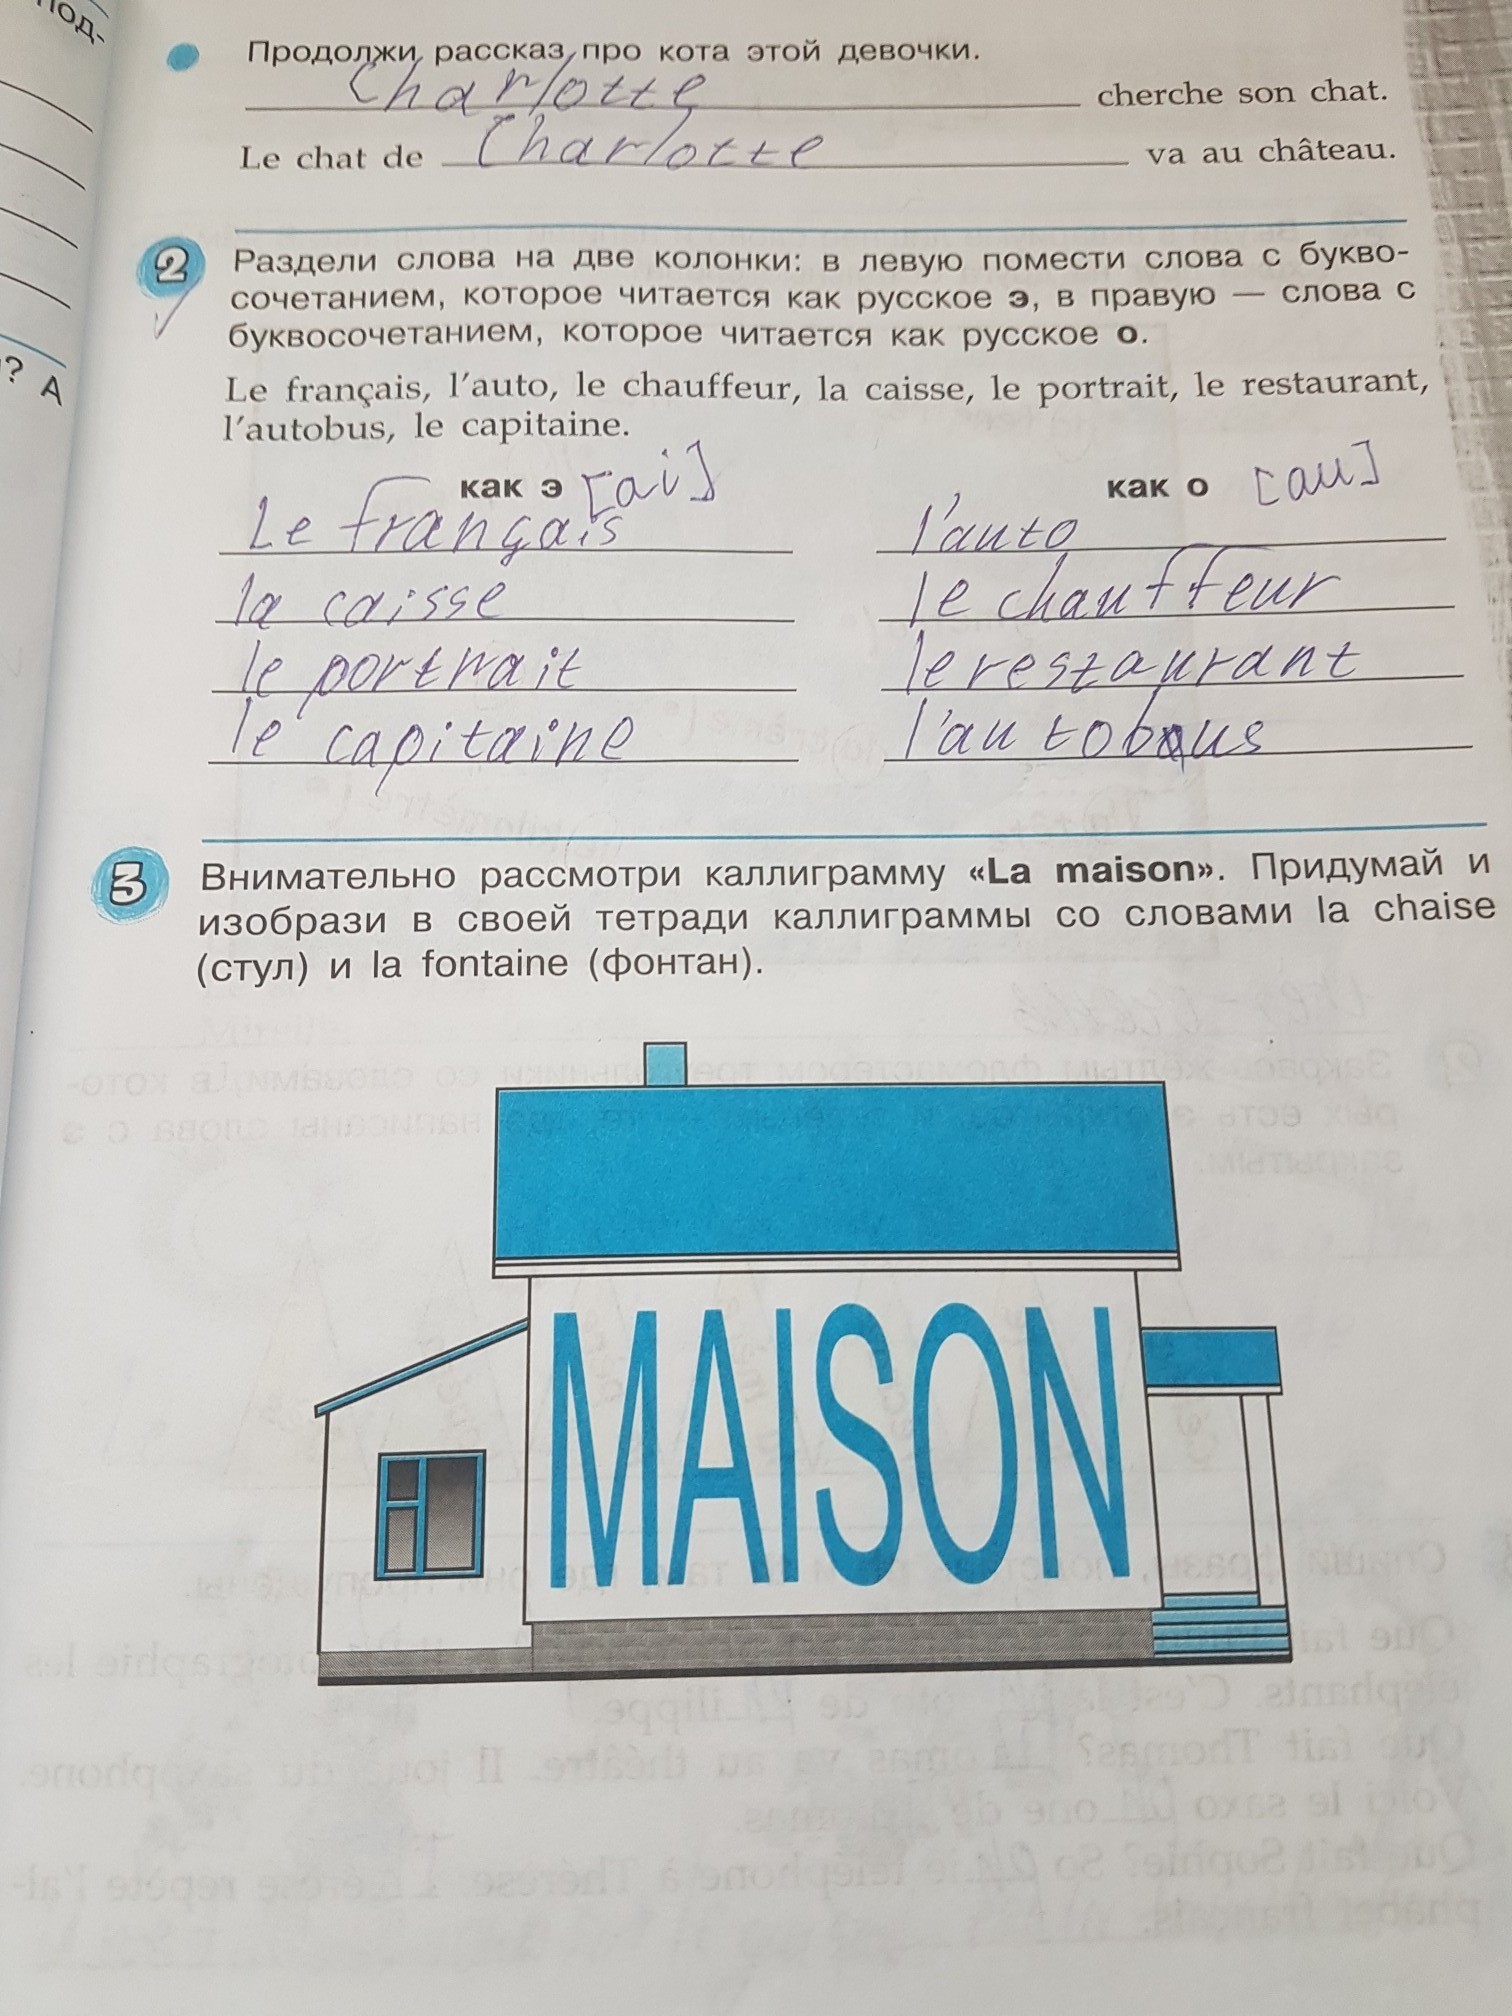 под-
Продолжи рассказ про кота этой девочки.
Charlotte cherche son chat.
Le chat de Charlotte va au château.
2 Раздели слова на две колонки: в левую помести слова с букво-
сочетанием, которое читается как русское э, в правую — слова с
? А
буквосочетанием, которое читается как русское о.
Le français, l'auto, le chauffeur, la caisse, le portrait, le restaurant,
l'autobus, le capitaine.
как э [ai] как о [au]
Le français l'auto
la caisse le chauffeur
le portrait le restaurant
le capitaine l'autobus
3 Внимательно рассмотри каллиграмму «La maison». Придумай и
изобрази в своей тетради каллиграммы со словами la chaise
(стул) и la fontaine (фонтан).
MAISON